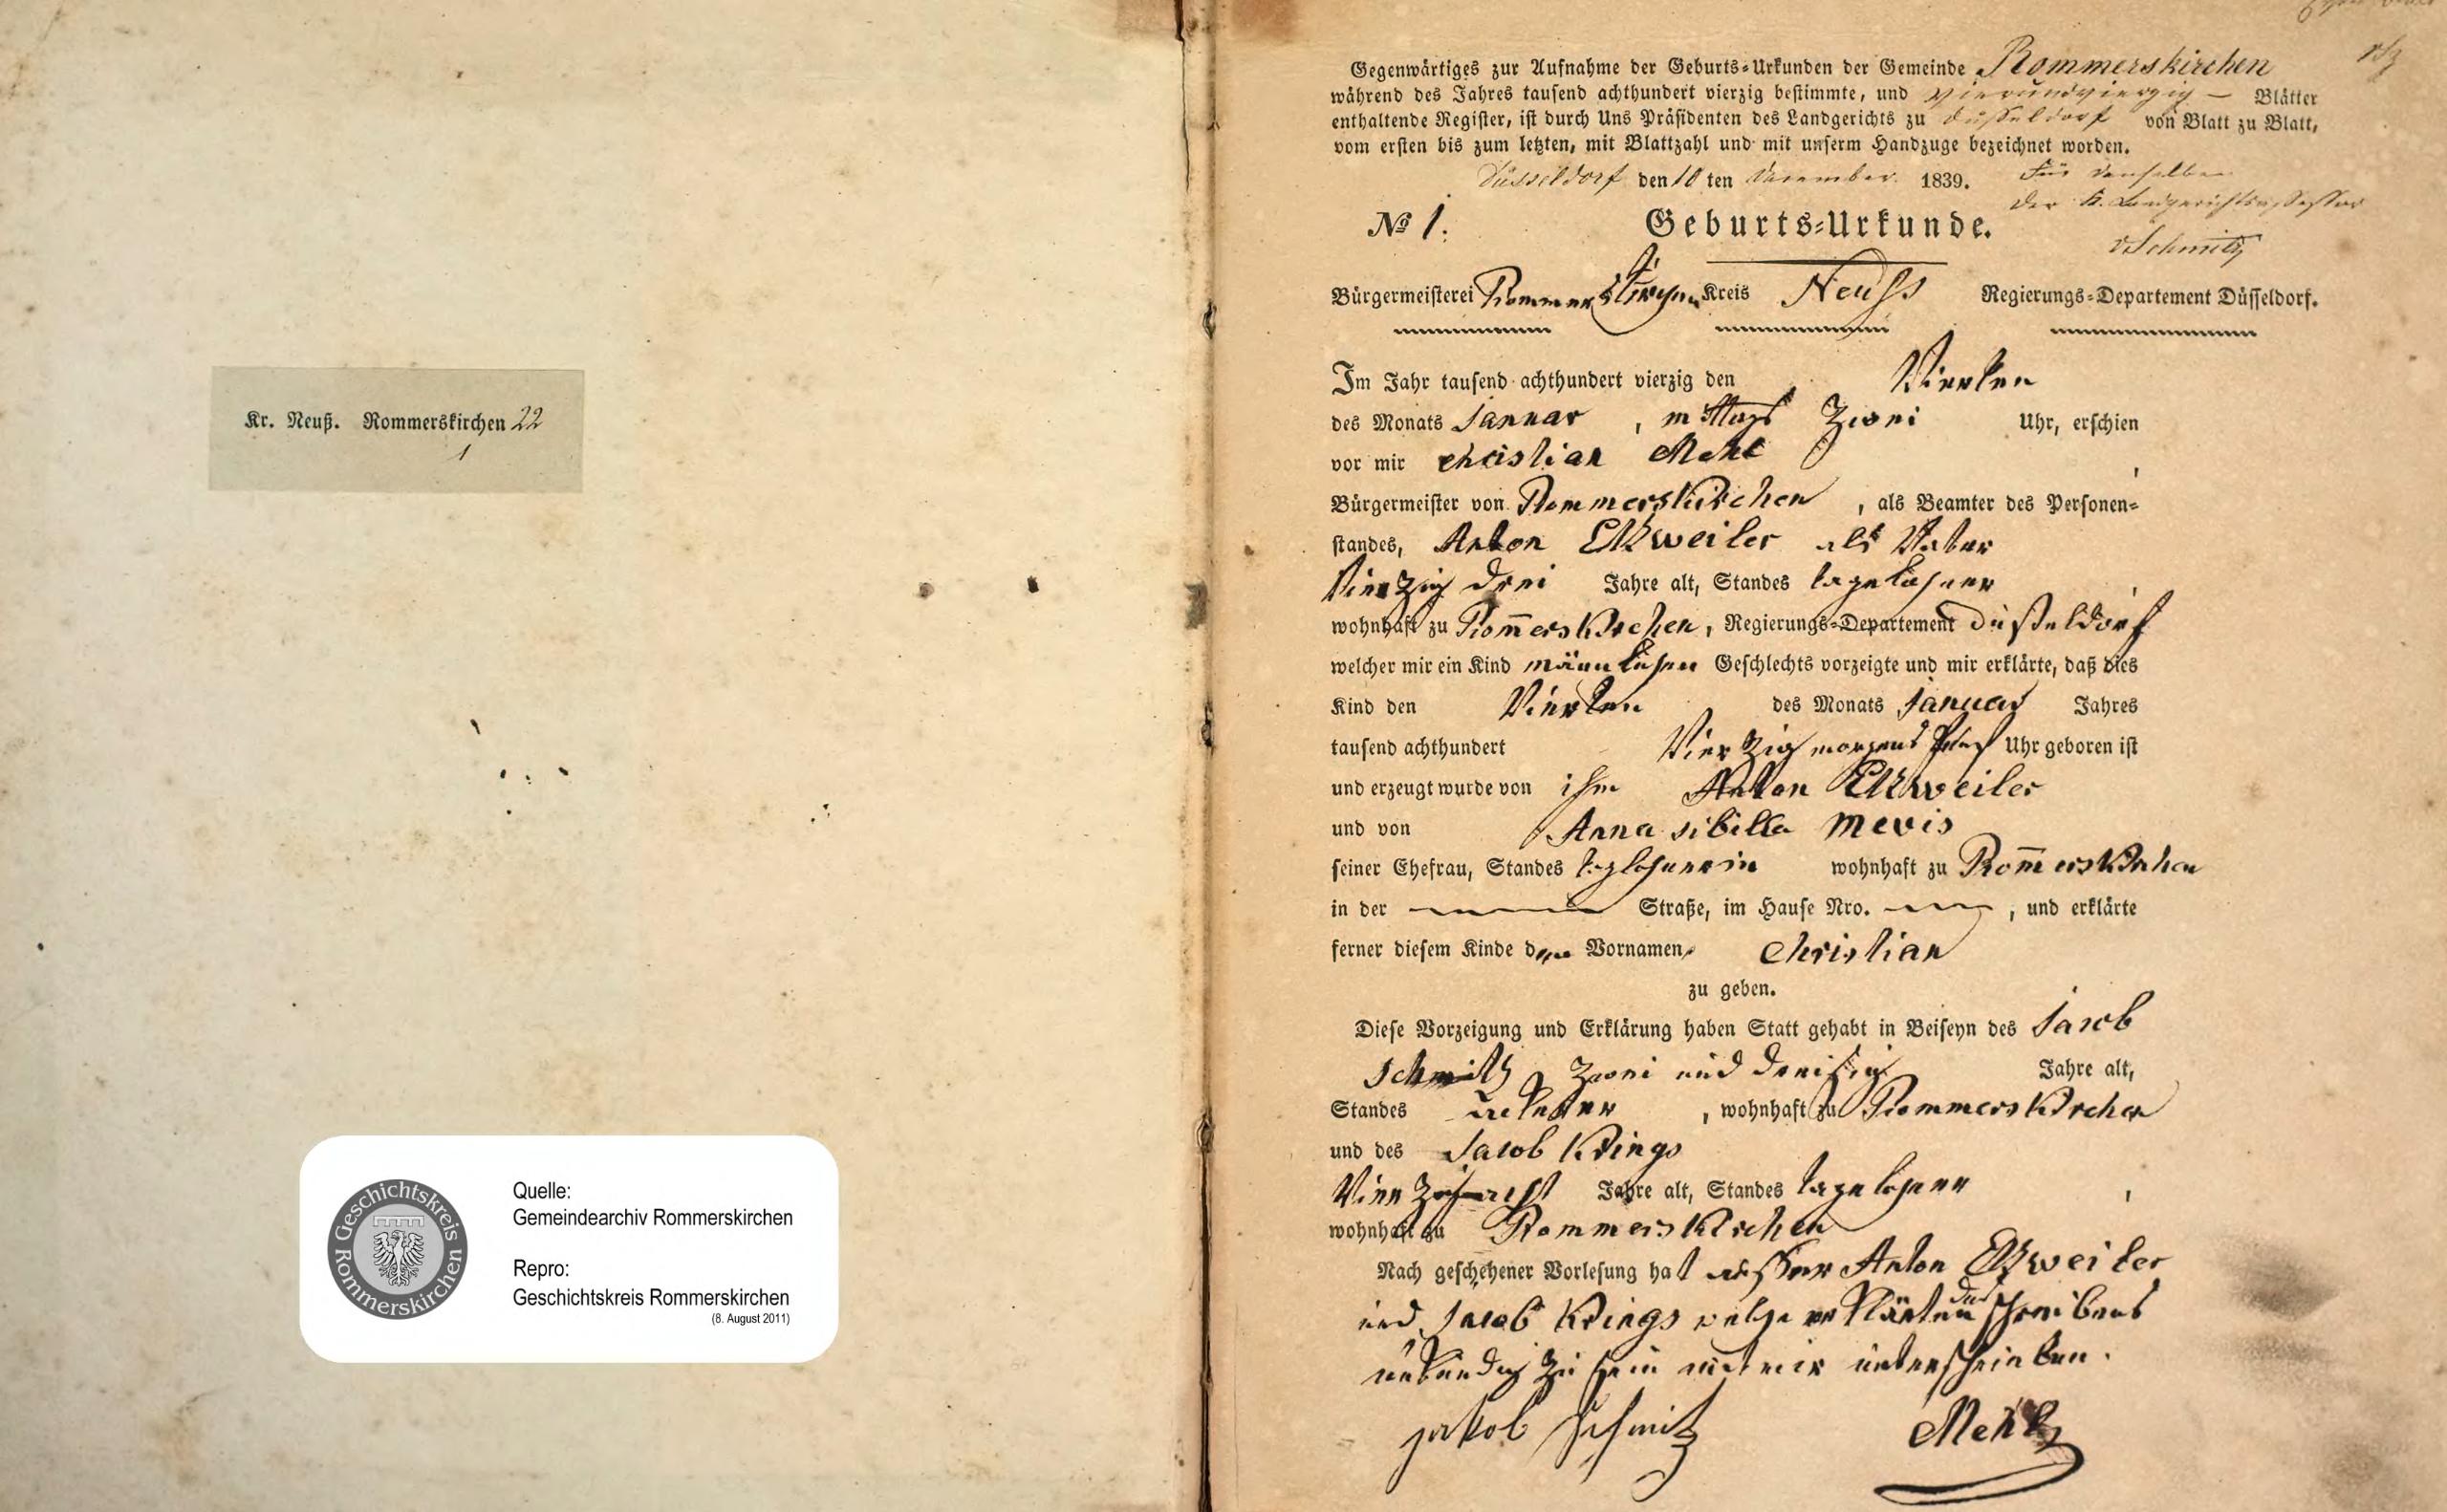 Kr. Neuß. Rommerskirchen 22
1
Geschichtskreis Rommerskirchen
Quelle:
Gemeindearchiv Rommerskirchen
Repro:
Geschichtskreis Rommerskirchen
(8. August 2011)
Gegenwärtiges zur Aufnahme der Geburts-Urkunden der Gemeinde Rommerskirchen
während des Jahres tausend achthundert vierzig bestimmte, und vierundvierzig — Blätter
enthaltende Register, ist durch Uns Präsidenten des Landgerichts zu Düsseldorf von Blatt zu Blatt,
vom ersten bis zum letzten, mit Blattzahl und mit unserm Handzuge bezeichnet worden.
Düsseldorf den 10 ten December 1839.
Für denselben
der K. Landgerichtsassessor
Schmitz
No 1.
Geburts-Urkunde.
Bürgermeisterei Rommerskirchen Kreis Neuss Regierungs-Departement Düsseldorf.
Im Jahr tausend achthundert vierzig den Vierten
des Monats Januar, mittags Zwei Uhr, erschien
vor mir Christian
Bürgermeister von Rommerskirchen, als Beamter des Personen-
standes, Anton Elkweiler als Vater
Vierzig drei Jahre alt, Standes tagelöhner
wohnhaft zu Rom̄erskirchen, Regierungs-Departement Düsseldorf
welcher mir ein Kind männlichen Geschlechts vorzeigte und mir erklärte, daß dies
Kind den Vierten des Monats Januar Jahres
tausend achthundert Vierzig morgens Uhr geboren ist
und erzeugt wurde von ihm Anton Elkweiler
und von Anna Sibilla Mevis
seiner Ehefrau, Standes taglöhnerin wohnhaft zu Rom̄erskirchen
in der Straße, im Hause Nro. , und erklärte
ferner diesem Kinde den Vornamen Christian
zu geben.
Diese Vorzeigung und Erklärung haben Statt gehabt in Beiseyn des Jacob
Schmitz Zwei und dreißig Jahre alt,
Standes , wohnhaft zu Rommerskirchen
und des Jacob Krings
Vierzig acht Jahre alt, Standes tagelöhner
wohnhaft zu Rommerskirchen
Nach geschehener Vorlesung hat ausser Anton Elkweiler
und Jacob Krings welche erklärten des schreibens
unkundig zu sein mit mir unterschrieben.
Jakob Schmitz